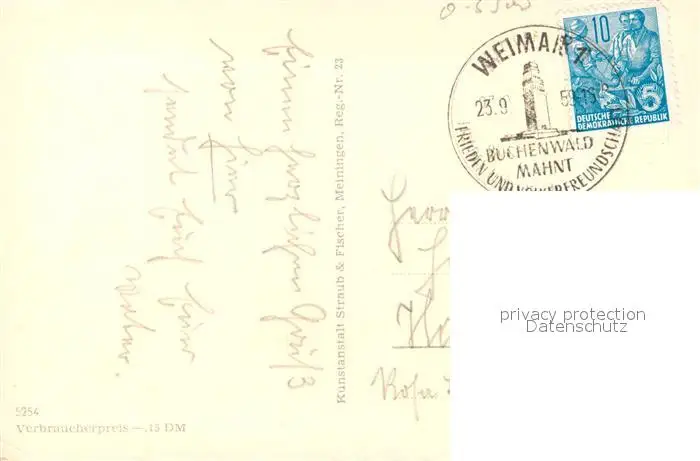 WEIMAR 1
23.9
BUCHENWALD
MAHNT
FRIEDEN UND VÖLKERFREUNDSCHA
10
5
DEUTSCHE
DEMOKRATISCHE REPUBLIK
Einen herzlichen Gruß
von hier
sendet Euch Euer
Vater.
Kunstanstalt Straub & Fischer, Meiningen, Reg.-Nr. 23
Herr
Rosa
privacy protection
Datenschutz
5254
Verbraucherpreis —,15 DM